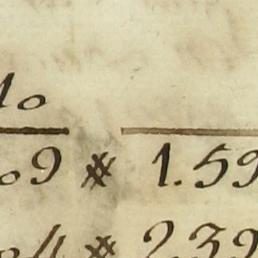 10
09 * 1.59
04 * 2.39